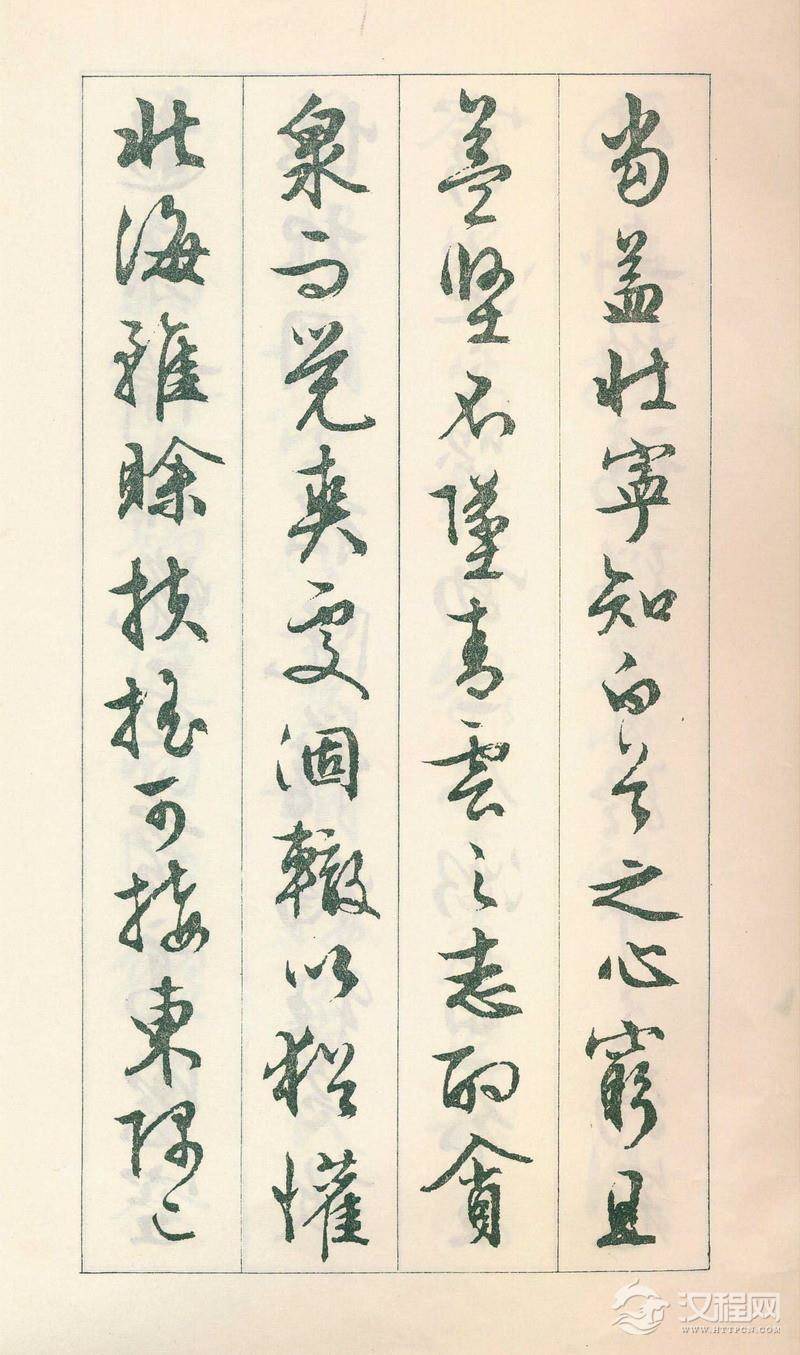 當益壯寧知白首之心窮且
益堅不墜青雲之志酌貪
泉而覺爽處涸轍以猶懽
北海雖賒扶搖可接東隅已
汉程网
WWW.HTTPCN.COM